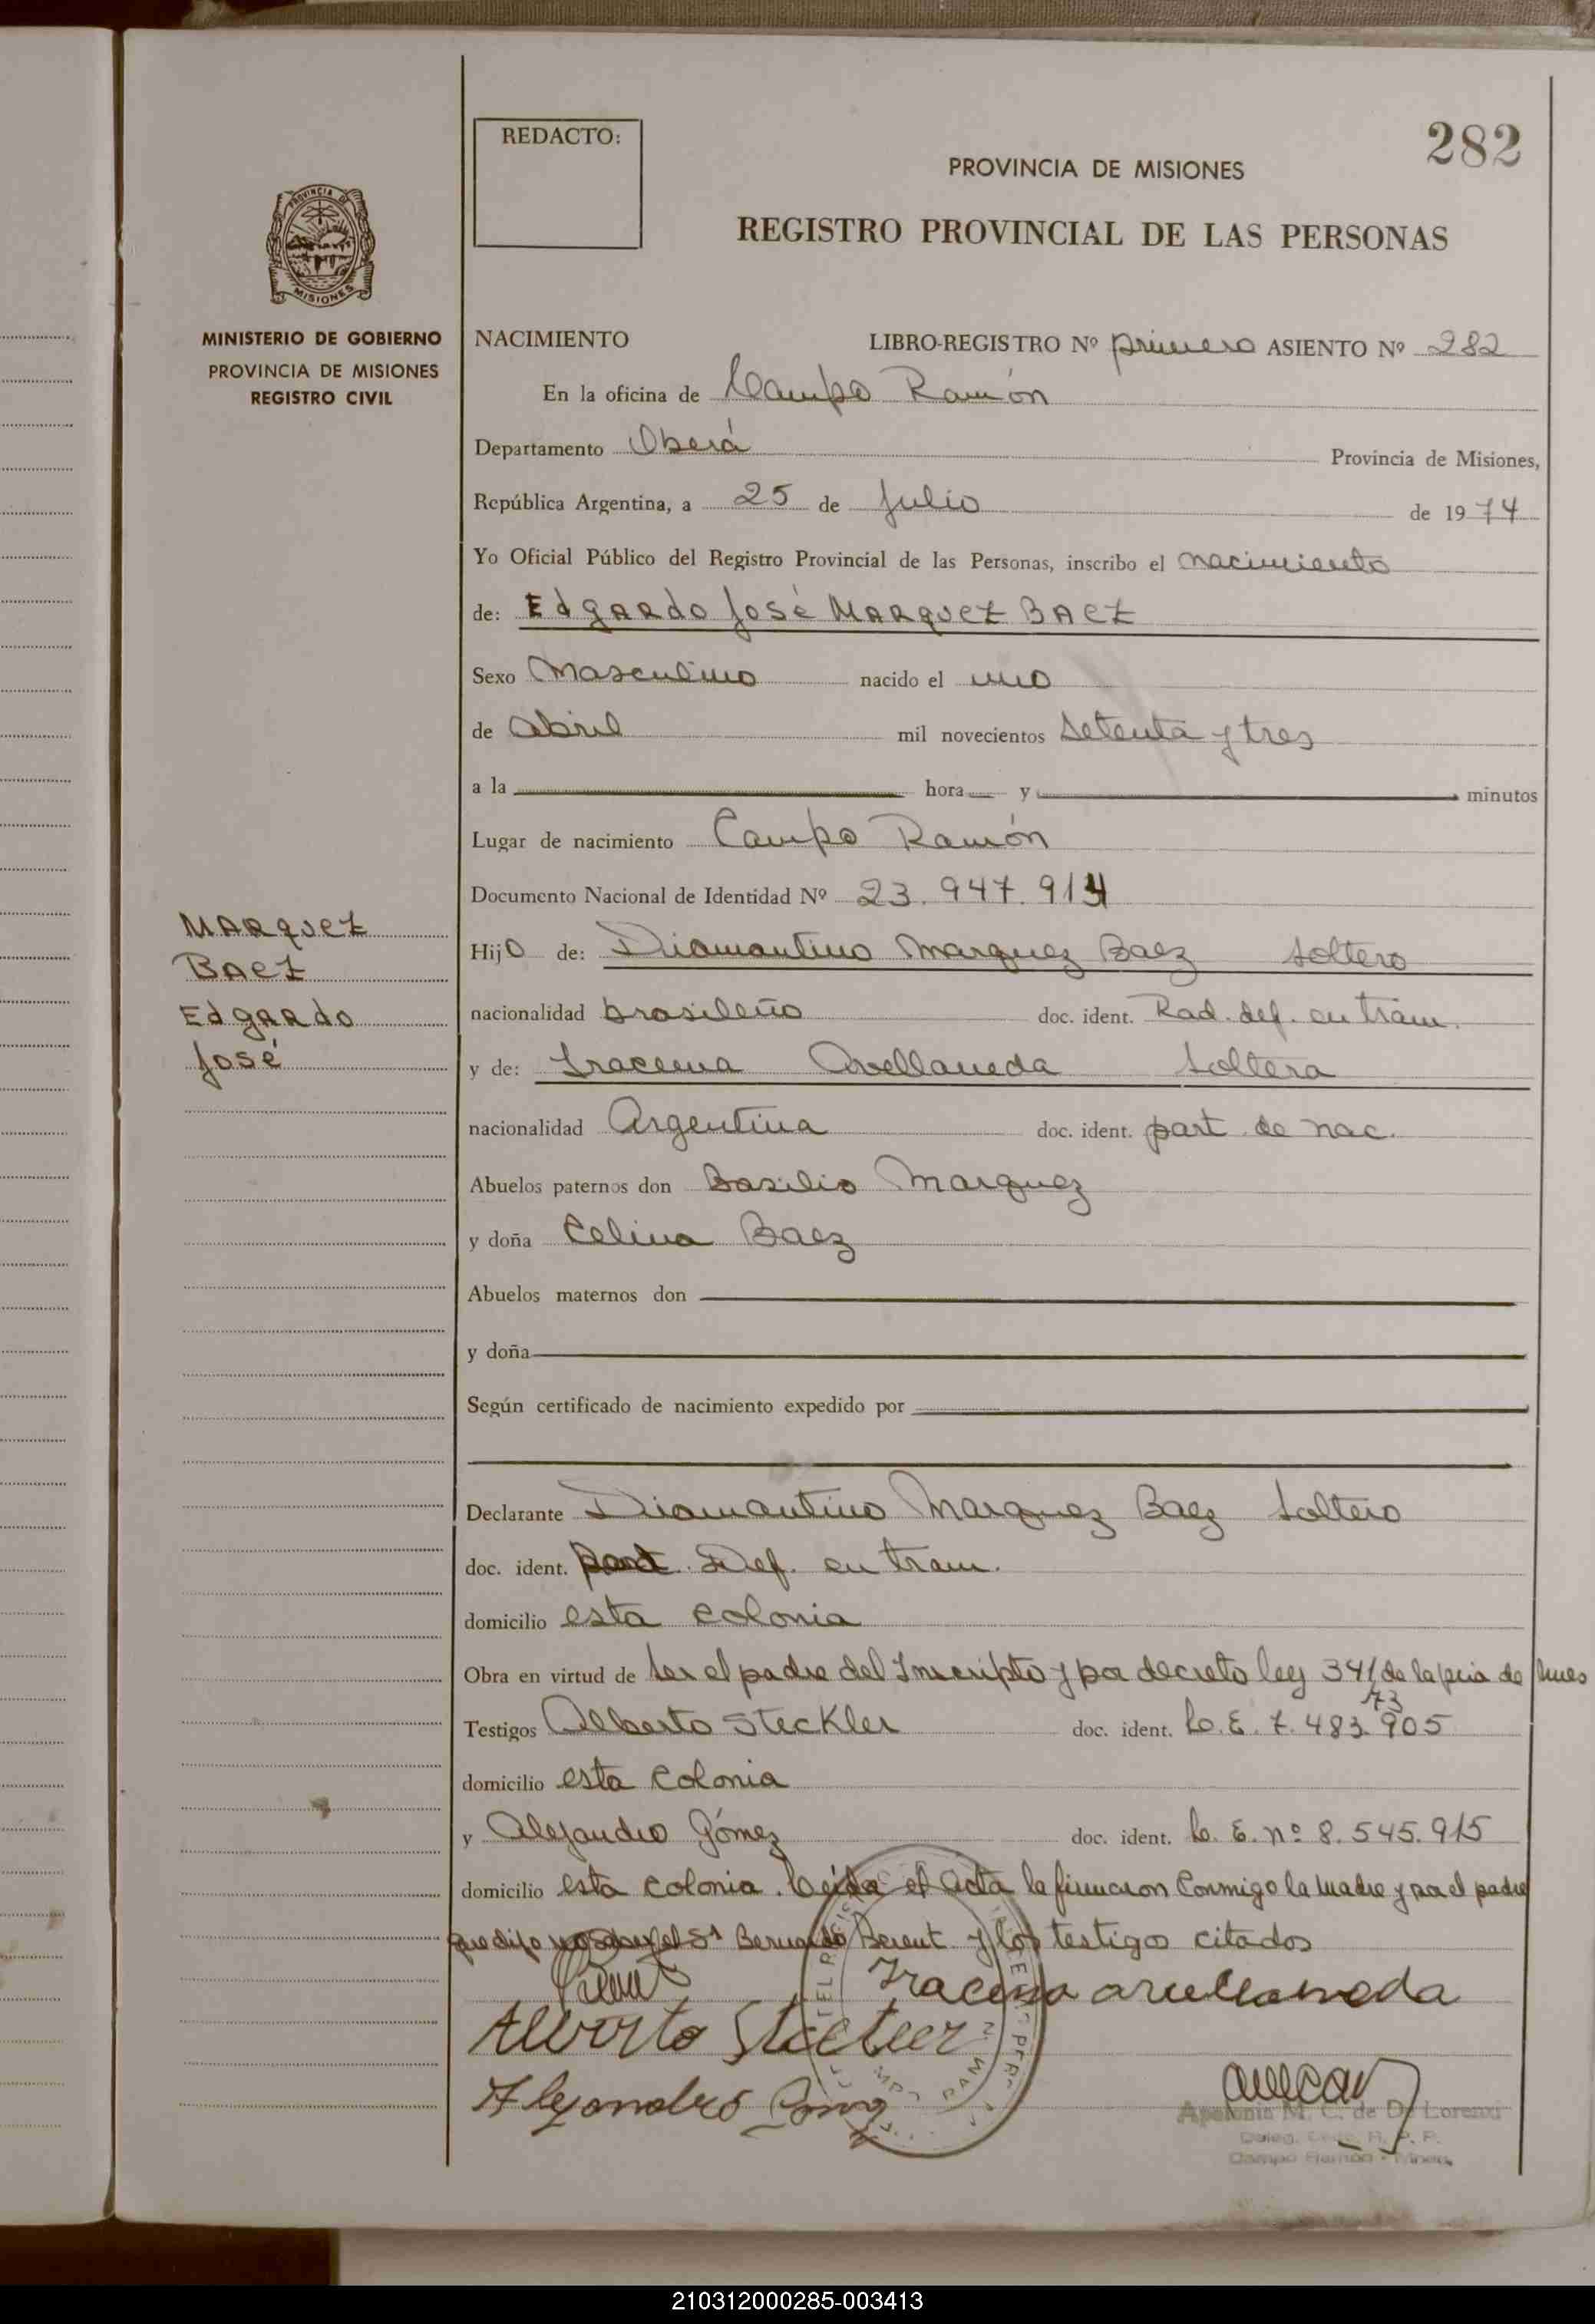 REDACTO:
282
PROVINCIA DE MISIONES
REGISTRO PROVINCIAL DE LAS PERSONAS
PROVINCIA DE
MISIONES
MINISTERIO DE GOBIERNO
PROVINCIA DE MISIONES
REGISTRO CIVIL
NACIMIENTO LIBRO-REGISTRO Nº primero ASIENTO Nº 282
En la oficina de Campo Ramón
Departamento Oberá Provincia de Misiones,
República Argentina, a 25 de Julio de 1974
Yo Oficial Público del Registro Provincial de las Personas, inscribo el nacimiento
de: Edgardo José MARQUEZ BAEZ
Sexo Masculino nacido el uno
de abril mil novecientos setenta y tres
a la hora y minutos
Lugar de nacimiento Campo Ramón
Documento Nacional de Identidad Nº 23.947.914
MARQUEZ
BAEZ
Edgardo
José
Hijo de: Diamantino Marquez Baez soltero
nacionalidad brasileño doc. ident. Rad. def. en tram.
y de: Iracema Avellaneda soltera
nacionalidad Argentina doc. ident. part de nac.
Abuelos paternos don Basilio Marquez
y doña Celina Baez
Abuelos maternos don
y doña
Según certificado de nacimiento expedido por
Declarante Diamantino Marquez Baez soltero
doc. ident. Def. en tram.
domicilio esta colonia
Obra en virtud de ser el padre del Inscripto y por decreto ley 341/73 de la pcia de Mnes
Testigos Alberto Steckler doc. ident. L.E. 7.483.905
domicilio esta colonia
y Alejandro Gómez doc. ident. L.E. nº 8.545.915
domicilio esta colonia. Leída el acta la firmaron conmigo la madre y por el padre
que dijo no saber el Sr Bernardo Berent y los testigos citados
Iracema avellaneda
Alberto Steckler
Alejandro Gomez
Apolonia M. C. de De Lorenzi
Campo Ramón - Mnes.
210312000285-003413